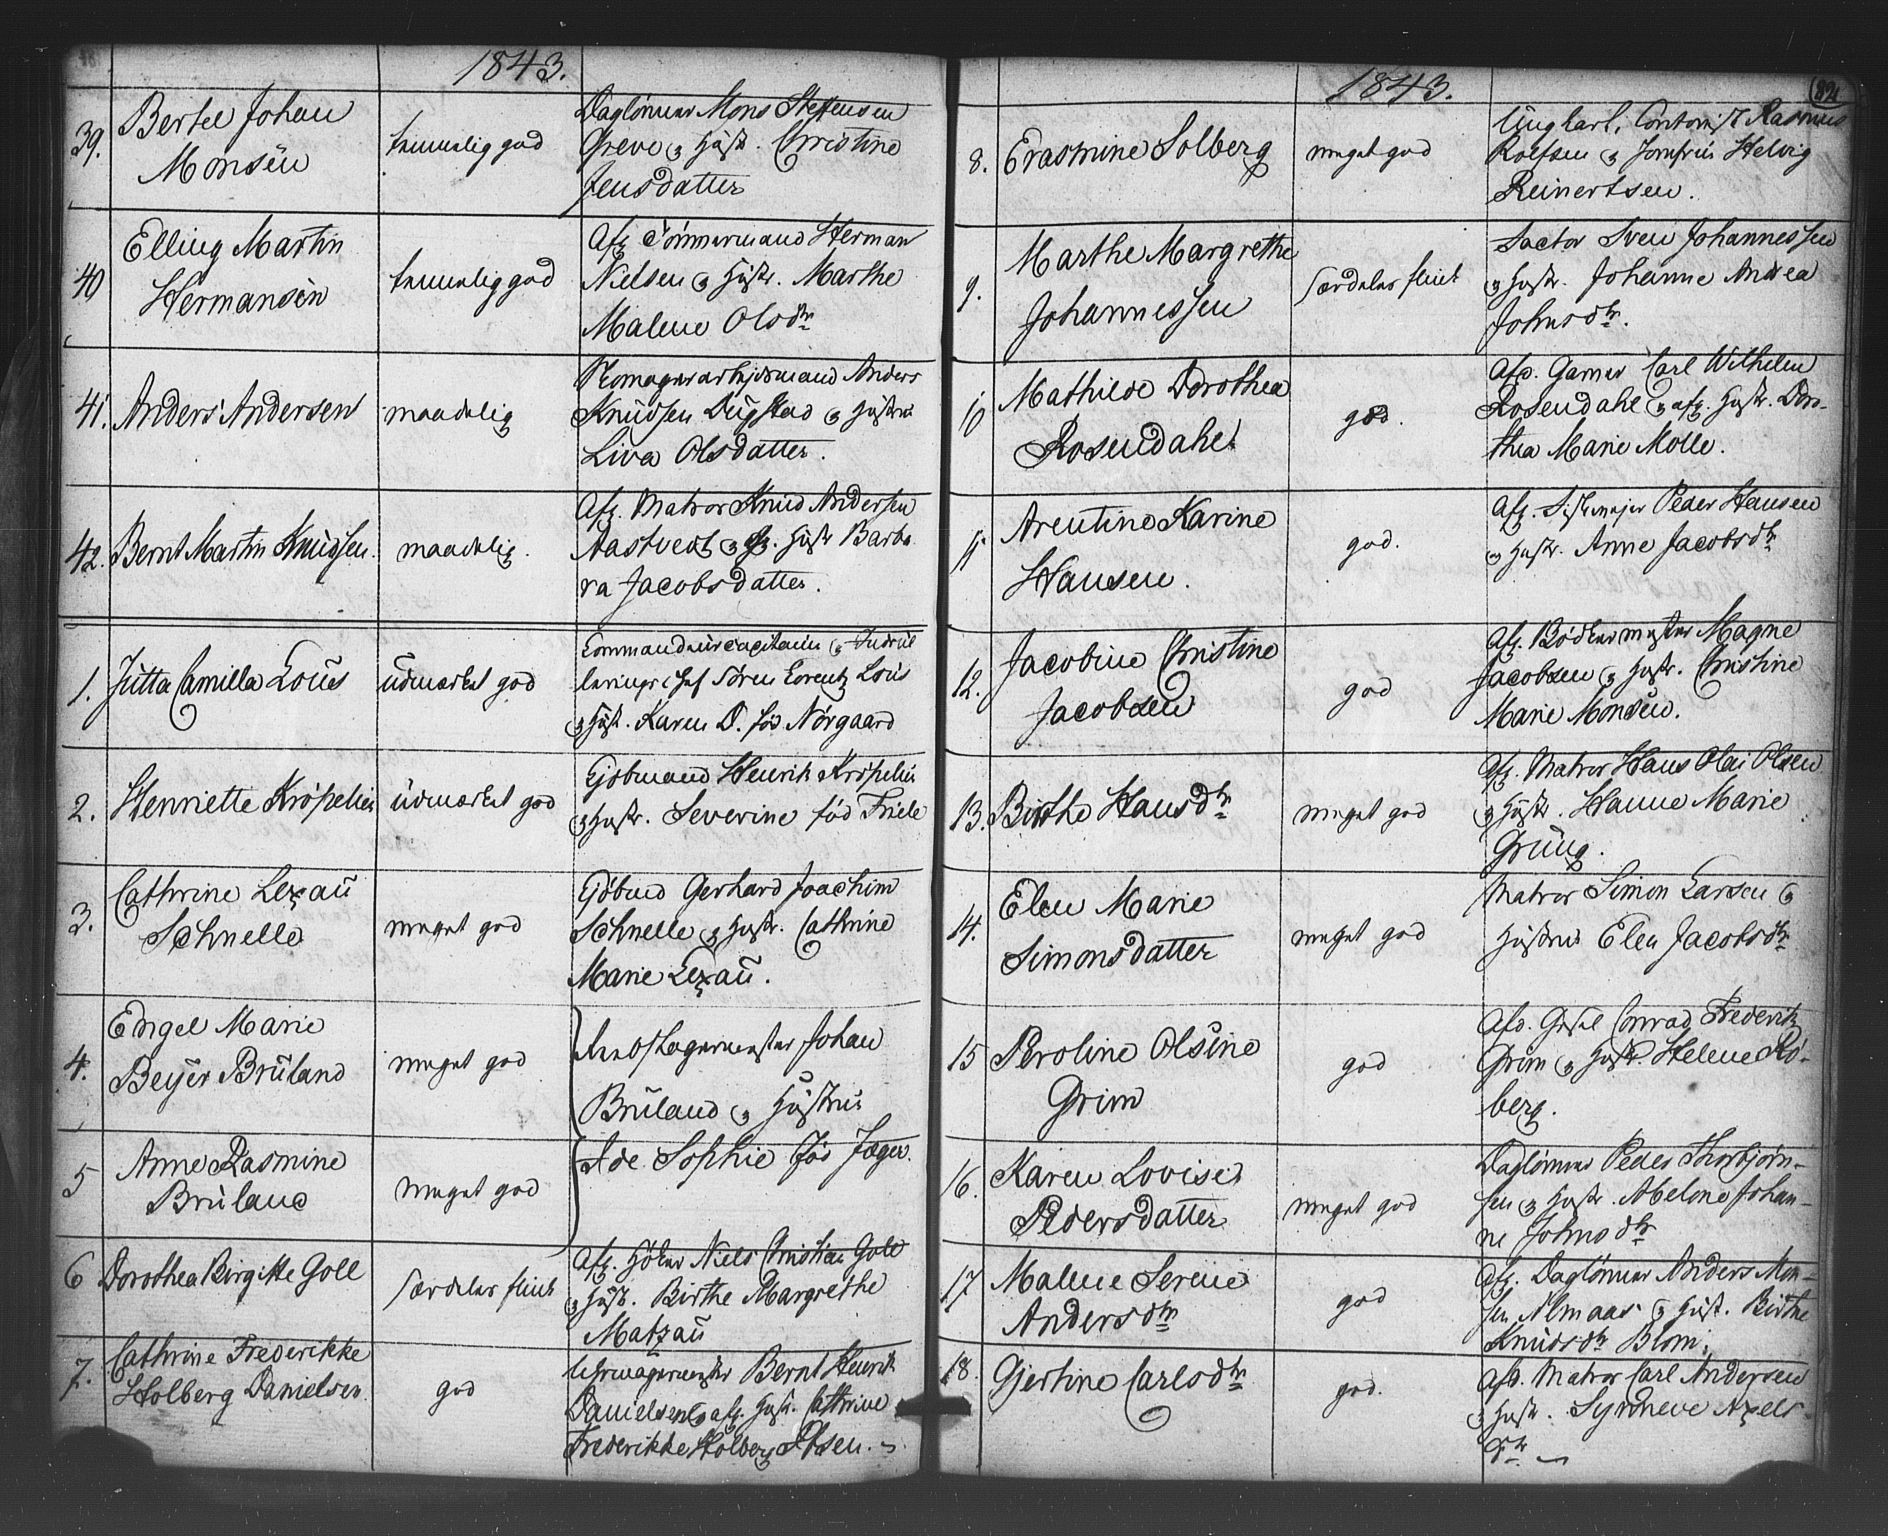 1843.
39.
Bertel Johan
Monsen
temmelig god
Daglönner Mons Steffensen
Greve og Hustr. Christine
Jensdatter
40
Elling Martin
Hermansen
temmelig god
Afg. Tömmermand Herman
Nielsen og Hustr. Marthe
Malene Olsdtr
41.
Anders Andersen
maadelig
Skomagerarbejdsmand Anders
Knudsen Dugstad og Hustru
Liva Olsdatter.
42.
Bernt Martin Knudsen.
maadelig.
Afg. Matros Knud Andersen
Aastvedt og afg. Hustr Barba
ra Jacobsdatter.
1.
Jutta Camilla Lous
udmærket god
Commandeurcapitain og Indrul
leringschef Sören Lorentz Lous
og Hustr. Karen D. föd Nörgaard
2.
Henriette Kröpelin
udmærket god
Kjöbmand Henrik Kröpelin
og Hustr. Severine föd Friele
3.
Cathrine Lexau
Schnelle
meget god
Kjöbmd Gerhard Joachim
Schnelle og Hustr. Cathrine
Marie Lexau.
4.
Engel Marie
Beyer Bruland
meget god
Johan
Bruland og Hustrue
5
Anne Rasmine
Bruland
meget god
Ide Sophie föd Jæger.
6
Dorothea Birgitte Goll
særdeles flink
Afg. Höker Niels Christian Goll
og Hustr. Birthe Margrethe
Matzau
7.
Cathrine Frederikke
Holberg Danielsen
god
Uhrmagermester Bernt Henrik
Danielsen og afg. Hustr. Cathrine
Frederikke Holberg Olsen.
1843.
82
8.
Erasmine Solberg
meget god
Ungkarl, Contorist Rasmus
Rolfsen og Jomfru Helvig
Reinertsen.
9.
Marthe Margrethe
Johannessen
særdeles flink
Factor Sven Johannessen
og Hustr. Johanne Andrea
Johnsdtr.
10
Mathilde Dorothea
Rosendahl
god.
Afd. Garver Carl Wilhelm
Rosendahl og afg. Hustr. Doro-
thea Marie Molle.
11
Arentine Karine
Hansen.
god.
Afg. Peder Hansen
og Hustr. Anne Jacobsdtr
12.
Jacobine Christine
Jacobsen
god
Afg. Bödkermester Magne
Jacobsen og Hustr. Christine
Marie Monsen.
13.
Birthe Hansdtr
meget god
Afg. Matros Hans Olai Olsen
og Hustr. Hanne Marie
Grüng.
14.
Elen Marie
Simonsdatter
meget god
Matros Simon Larsen og
Hustrue Elen Jacobsdtr
15
Peroline Olsine
Grim
god
Afd. Gesel Conrad Frederik
Grim og Hustr. Helene Rö-
berg.
16.
Karen Lovise
Pedersdatter
meget god
Daglönner Peder Thorbjörn-
sen og Hustr. Abelone Johan-
ne Johnsdtr
17
Malene Serine
Andersdtr
god
Afg. Daglönner Anders Mon-
sen Almaas og Hust. Birthe
Knudsdtr Blom.
18.
Gjertine Carlsdtr
god.
Afd. Matros Carl Andersen
og Hustr. Synneve Axels-
dtr.